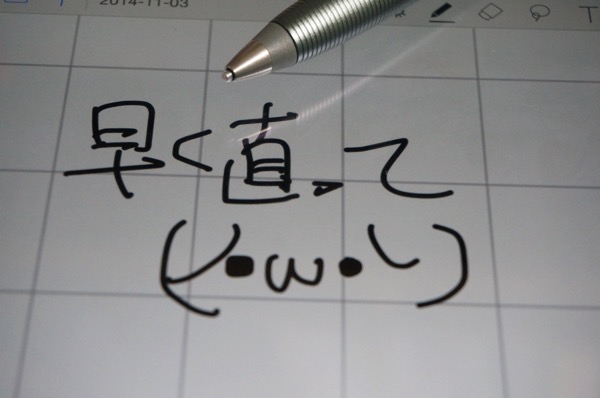 2014-11-03
早く直って
(´•ω•`)